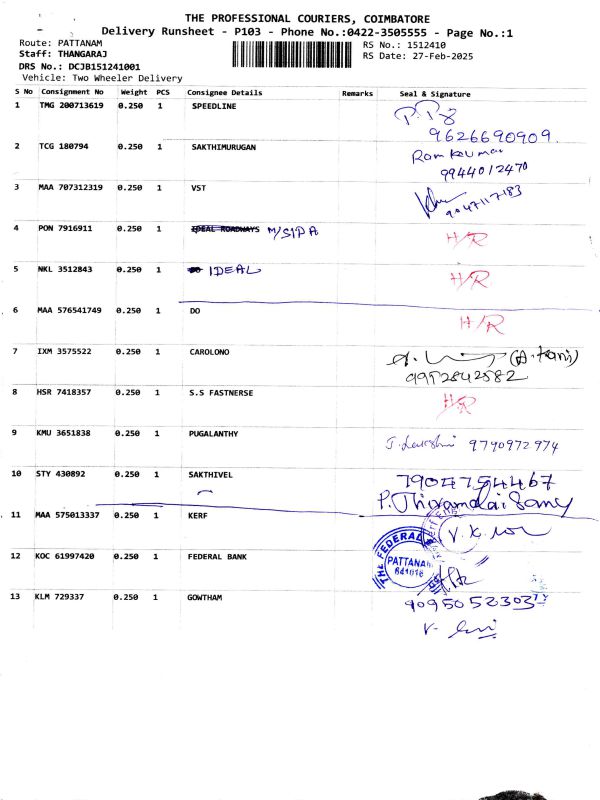 THE PROFESSIONAL COURIERS, COIMBATORE
Delivery Runsheet - P103 - Phone No.:0422-3505555 - Page No.:1
Route: PATTANAM
RS No.: 1512410
Staff: THANGARAJ
RS Date: 27-Feb-2025
DRS No.: DCJB151241001
Vehicle: Two Wheeler Delivery
S No Consignment No Weight PCS Consignee Details Remarks Seal & Signature
1 TMG 200713619 0.250 1 SPEEDLINE
9626690909.
2 TCG 180794 0.250 1 SAKTHIMURUGAN Ramkumar
9944012470
3 MAA 707312319 0.250 1 VST
9047117183
4 PON 7916911 0.250 1 IDEAL ROADWAYS M/SIPA H/R
5 NKL 3512843 0.250 1 DO IDEAL H/R
6 MAA 576541749 0.250 1 DO H/R
7 IXM 3575522 0.250 1 CAROLONO
9952842582
8 HSR 7418357 0.250 1 S.S FASTNERSE H/R
9 KMU 3651838 0.250 1 PUGALANTHY J. Lakshmi 9790972974
10 STY 430892 0.250 1 SAKTHIVEL 7904754467
P. Thirumalai Samy
11 MAA 575013337 0.250 1 KERF
12 KOC 61997420 0.250 1 FEDERAL BANK
THE FEDERAL
PATTANAM
641016
13 KLM 729337 0.250 1 GOWTHAM 9095052303